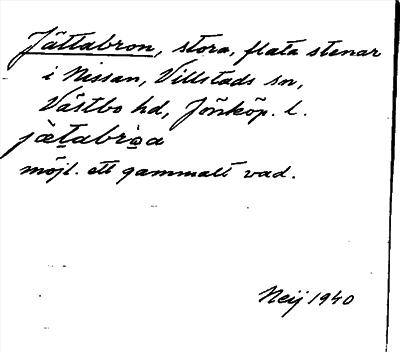 Jättabron, stora, flata stenar
i Nissan, Villstads sn,
Västbo hd, Jönköp. l.
jætabrꝍa
möjl. ett gammalt vad.
Neij 1940